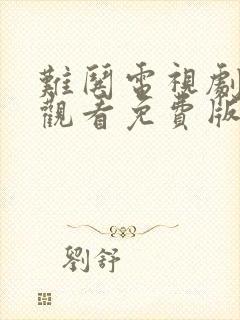 難鬪電視劇
觀看免費版
劉舒